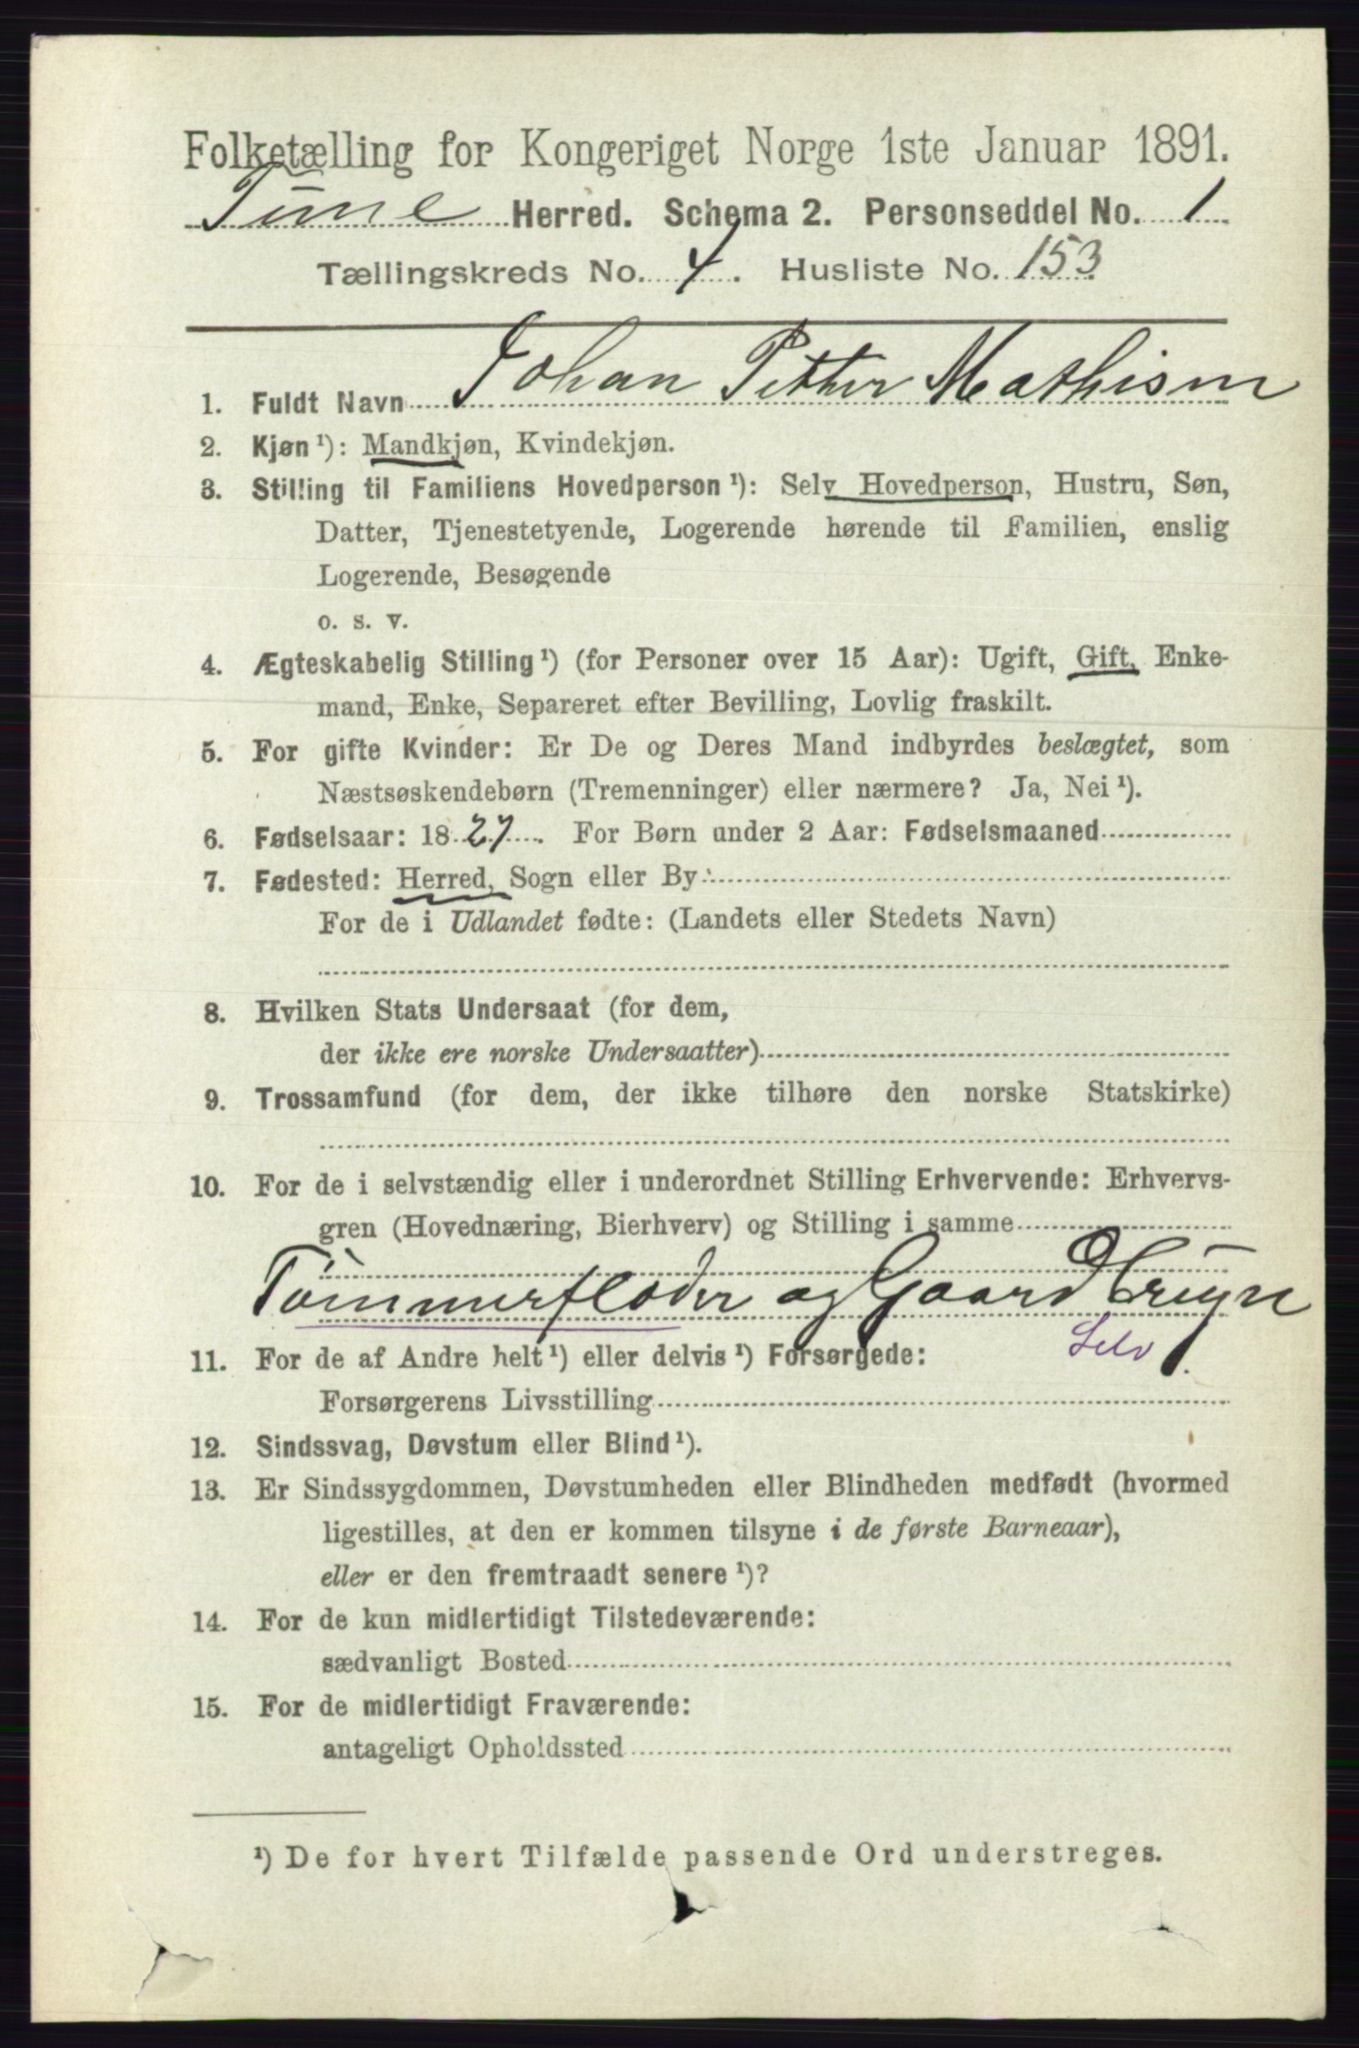 Folketælling for Kongeriget Norge 1ste Januar 1891.
Tune Herred. Schema 2. Personseddel No. 1
Tællingskreds No. 4. Husliste No. 153
1. Fuldt Navn Johan Petter Mathisen
2. Kjøn ¹): Mandkjøn, Kvindekjøn.
3. Stilling til Familiens Hovedperson ¹): Selv Hovedperson, Hustru, Søn,
Datter, Tjenestetyende, Logerende hørende til Familien, enslig
Logerende, Besøgende
o. s. v.
4. Ægteskabelig Stilling ¹) (for Personer over 15 Aar): Ugift, Gift, Enke-
mand, Enke, Separeret efter Bevilling, Lovlig fraskilt.
5. For gifte Kvinder: Er De og Deres Mand indbyrdes beslægtet, som
Næstsøskendebørn (Tremenninger) eller nærmere? Ja, Nei ¹).
6. Fødselsaar: 1827. For Børn under 2 Aar: Fødselsmaaned
7. Fødested: Herred, Sogn eller By
For de i Udlandet fødte: (Landets eller Stedets Navn)
8. Hvilken Stats Undersaat (for dem,
der ikke ere norske Undersaatter)
9. Trossamfund (for dem, der ikke tilhøre den norske Statskirke)
10. For de i selvstændig eller i underordnet Stilling Erhvervende: Erhvervs-
gren (Hovednæring, Bierhverv) og Stilling i samme
Tømmerfløder og Gaardbruger
Selv
11. For de af Andre helt ¹) eller delvis ¹) Forsørgede:
Forsørgerens Livsstilling
12. Sindssvag, Døvstum eller Blind ¹).
13. Er Sindssygdommen, Døvstumheden eller Blindheden medfødt (hvormed
ligestilles, at den er kommen tilsyne i de første Barneaar),
eller er den fremtraadt senere ¹)?
14. For de kun midlertidigt Tilstedeværende:
sædvanligt Bosted
15. For de midlertidigt Fraværende:
antageligt Opholdssted
¹) De for hvert Tilfælde passende Ord understreges.